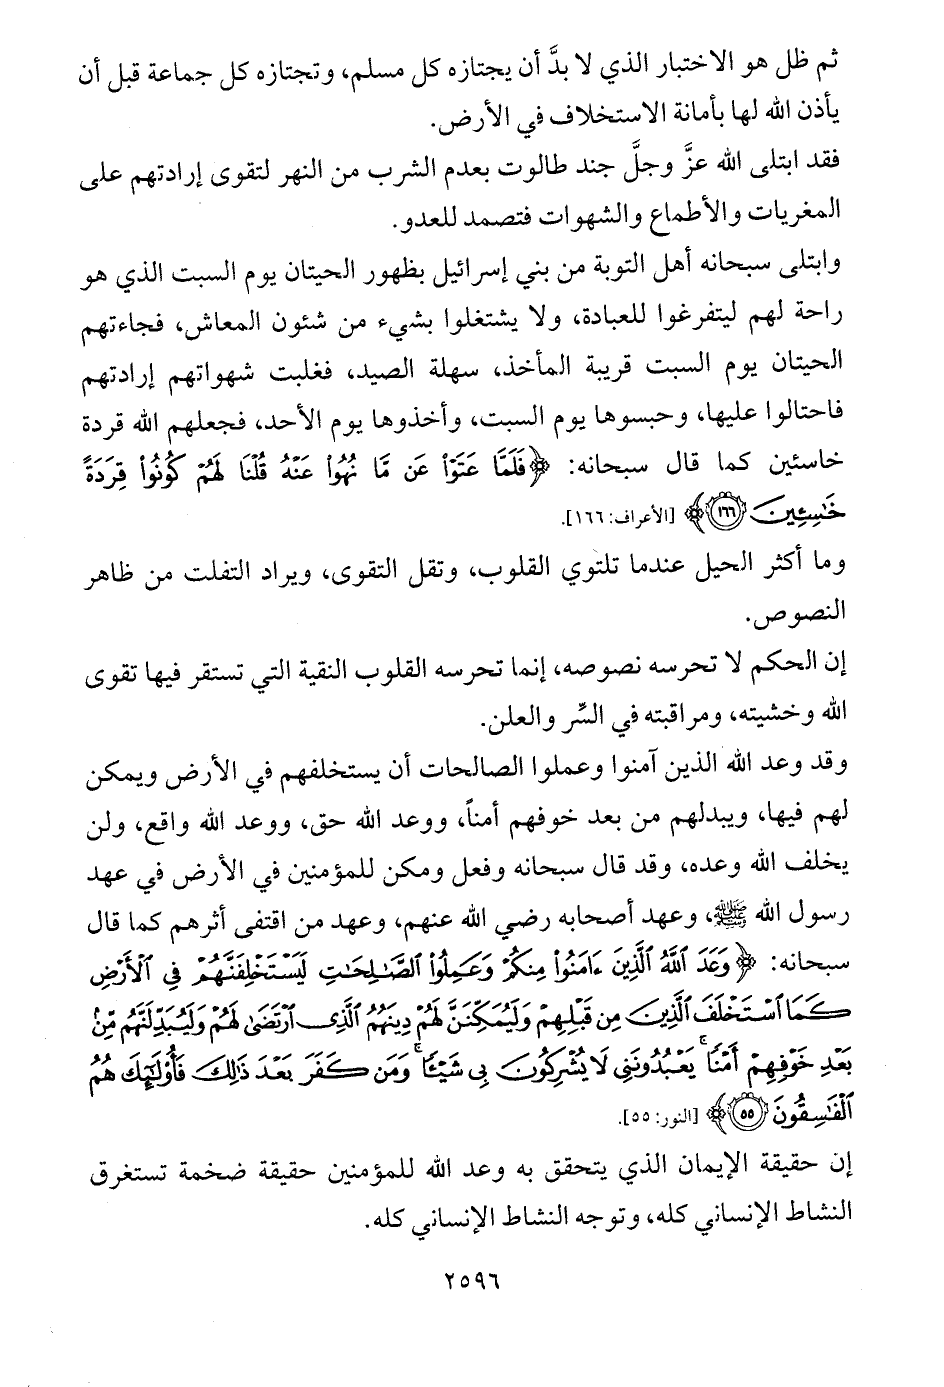 ثم ظل هو الاختبار الذي لا بدَّ أن يجتازه كل مسلم، وتجتازه كل جماعة قبل أن
يأذن الله لها بأمانة الاستخلاف في الأرض.
فقد ابتلى الله عزَّ وجلَّ جند طالوت بعدم الشرب من النهر لتقوى إرادتهم على
المغريات والأطماع والشهوات فتصمد للعدو.
وابتلى سبحانه أهل التوبة من بني إسرائيل بظهور الحيتان يوم السبت الذي هو
راحة لهم ليتفرغوا للعبادة، ولا يشتغلوا بشيء من شئون المعاش، فجاءتهم
الحيتان يوم السبت قريبة المأخذ، سهلة الصيد، فغلبت شهواتهم إرادتهم
فاحتالوا عليها، وحبسوها يوم السبت، وأخذوها يوم الأحد، فجعلهم الله قردة
خاسئين كما قال سبحانه: ﴿فَلَمَّا عَتَوۡاْ عَن مَّا نُهُواْ عَنۡهُ قُلۡنَا لَهُمۡ كُونُواْ قِرَدَةً
خَٰسِـِٔينَ ١٦٦﴾ [الأعراف: ١٦٦].
وما أكثر الحيل عندما تلتوي القلوب، وتقل التقوى، ويراد التفلت من ظاهر
النصوص.
إن الحكم لا تحرسه نصوصه، إنما تحرسه القلوب النقية التي تستقر فيها تقوى
الله وخشيته، ومراقبته في السِّر والعلن.
وقد وعد الله الذين آمنوا وعملوا الصالحات أن يستخلفهم في الأرض ويمكن
لهم فيها، ويبدلهم من بعد خوفهم أمناً، ووعد الله حق، ووعد الله واقع، ولن
يخلف الله وعده، وقد قال سبحانه وفعل ومكن للمؤمنين في الأرض في عهد
رسول الله ﷺ، وعهد أصحابه رضي الله عنهم، وعهد من اقتفى أثرهم كما قال
سبحانه: ﴿وَعَدَ ٱللَّهُ ٱلَّذِينَ ءَامَنُواْ مِنكُمۡ وَعَمِلُواْ ٱلصَّٰلِحَٰتِ لَيَسۡتَخۡلِفَنَّهُمۡ فِي ٱلۡأَرۡضِ
كَمَا ٱسۡتَخۡلَفَ ٱلَّذِينَ مِن قَبۡلِهِمۡ وَلَيُمَكِّنَنَّ لَهُمۡ دِينَهُمُ ٱلَّذِي ٱرۡتَضَىٰ لَهُمۡ وَلَيُبَدِّلَنَّهُم مِّنۢ
بَعۡدِ خَوۡفِهِمۡ أَمۡنٗاۚ يَعۡبُدُونَنِي لَا يُشۡرِكُونَ بِي شَيۡـٔٗاۚ وَمَن كَفَرَ بَعۡدَ ذَٰلِكَ فَأُوْلَٰٓئِكَ هُمُ
ٱلۡفَٰسِقُونَ ٥٥﴾ [النور: ٥٥].
إن حقيقة الإيمان الذي يتحقق به وعد الله للمؤمنين حقيقة ضخمة تستغرق
النشاط الإنساني كله، وتوجه النشاط الإنساني كله.
٢٥٩٦